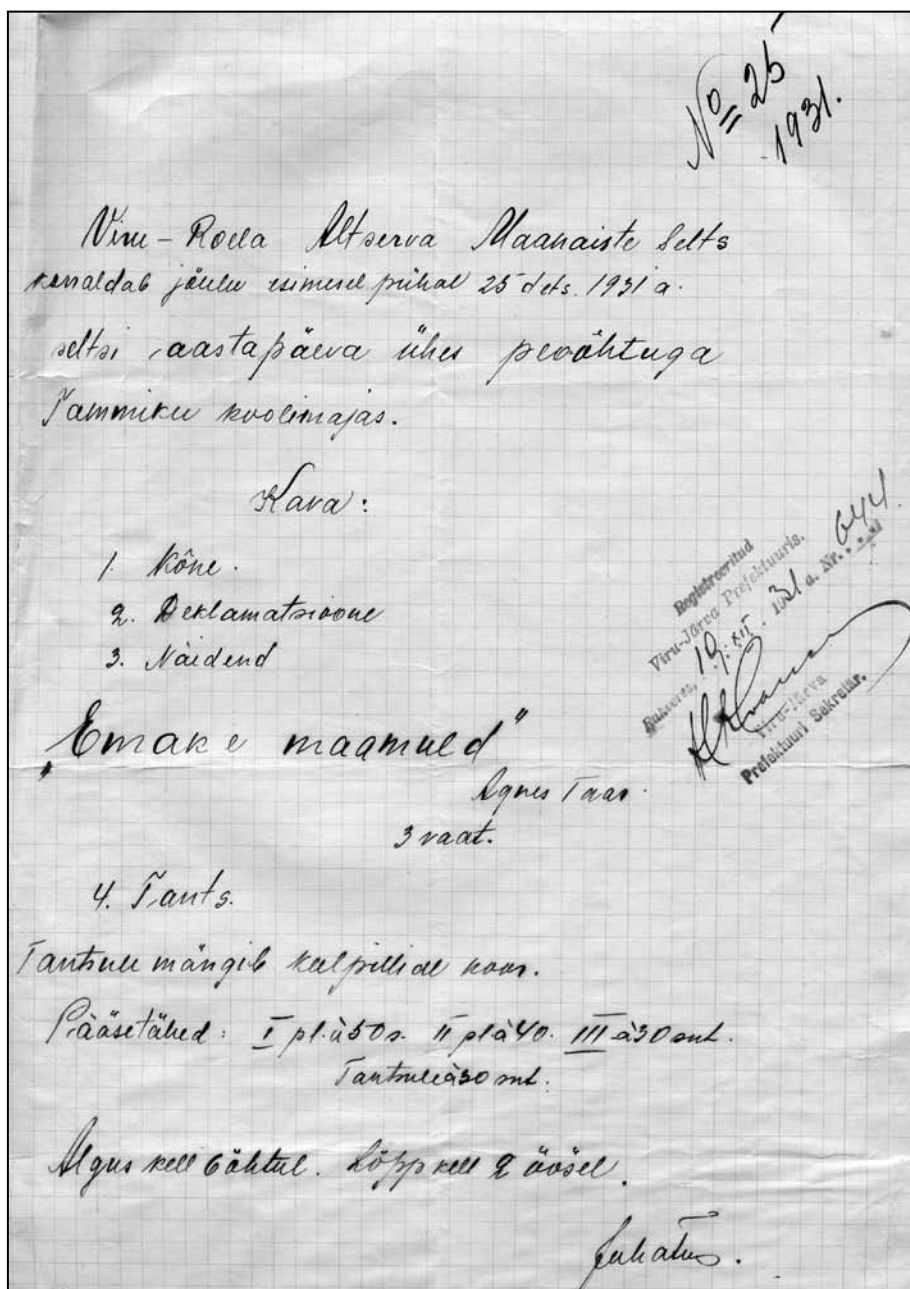 No 25
1931.
Viru-Roela Altserva Maanaiste Selts
korraldab jõulu esimesel pühal 25 dets. 1931 a.
seltsi aastapäeva ühes peoõhtuga
Tammiku koolimajas.
Kava:
1. Kõne.
2. Deklamatsioone
3. Näidend
„Emake maamuld"
Agnes Taar.
3 vaat.
4. Tants.
Tantsuks mängib keelpillide koor.
Pääsetähed: I pl. à 50 s. II pl à 40. III à 30 snt.
Tantsule à 30 snt.
Algus kell 6 õhtul. Lõpp kell 2 öösel.
Juhatus.
Registreeritud
Viru-Järva Prefektuuris.
Rakveres, 19. XII. 1931 a. Nr. 644.
Viru-Järva
Prefektuuri Sekretär.